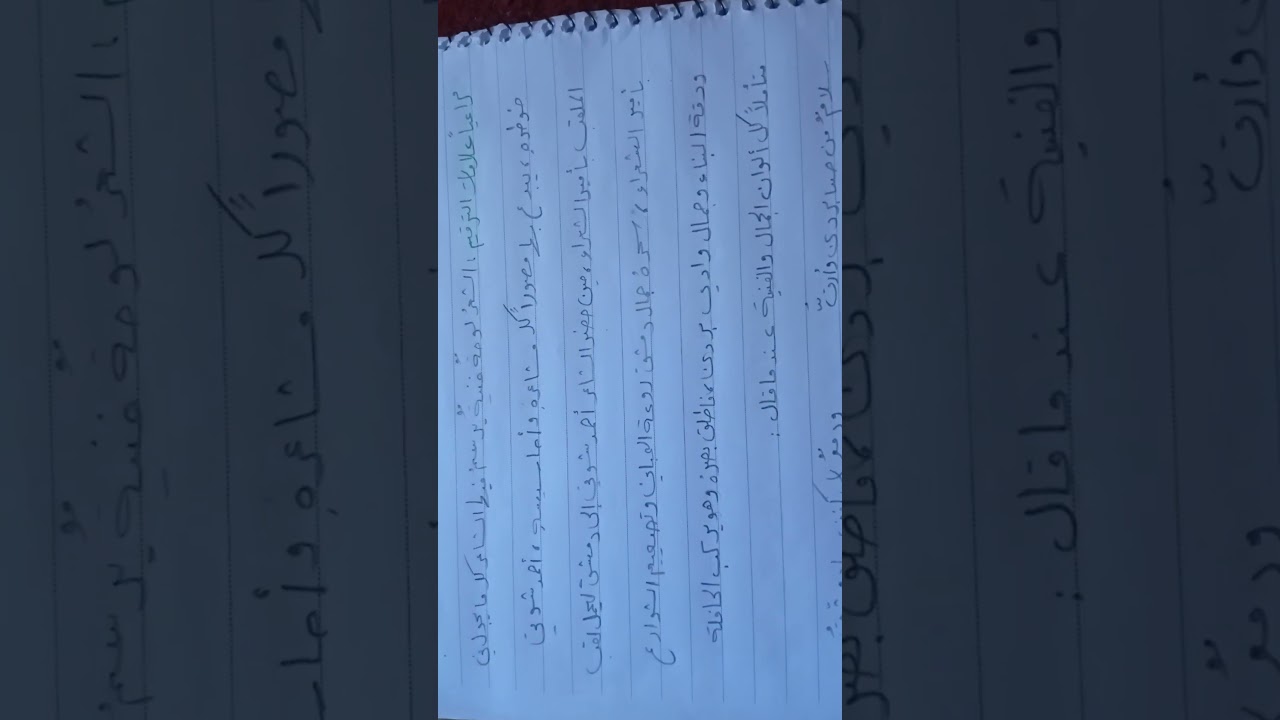 مراعياً علامات الترقيم، الشعرُ لوحةٌ فنيةٌ يرسمُ فيها الشاعر كل ما يجول في
خواطره، يبدعُ بل مصوراً كل مشاعرهِ وأحاسيسهِ، أحمد شوقي
الملقب بأمير الشعراء، حين حضر الشاعر أحمد شوقي إلى دمشق
أمير الشعراء، جمال دمشق روعة المباني وتصميم الشوارع
ودقة البناء وجمال وادي بردى، فأطلق بصره وهو يركب الحافلة
متأملاً كل ألوان الجمال والفتنة عندما قال:
سلامٌ من صبا بردى وأرقّ
ودمعٌ لا